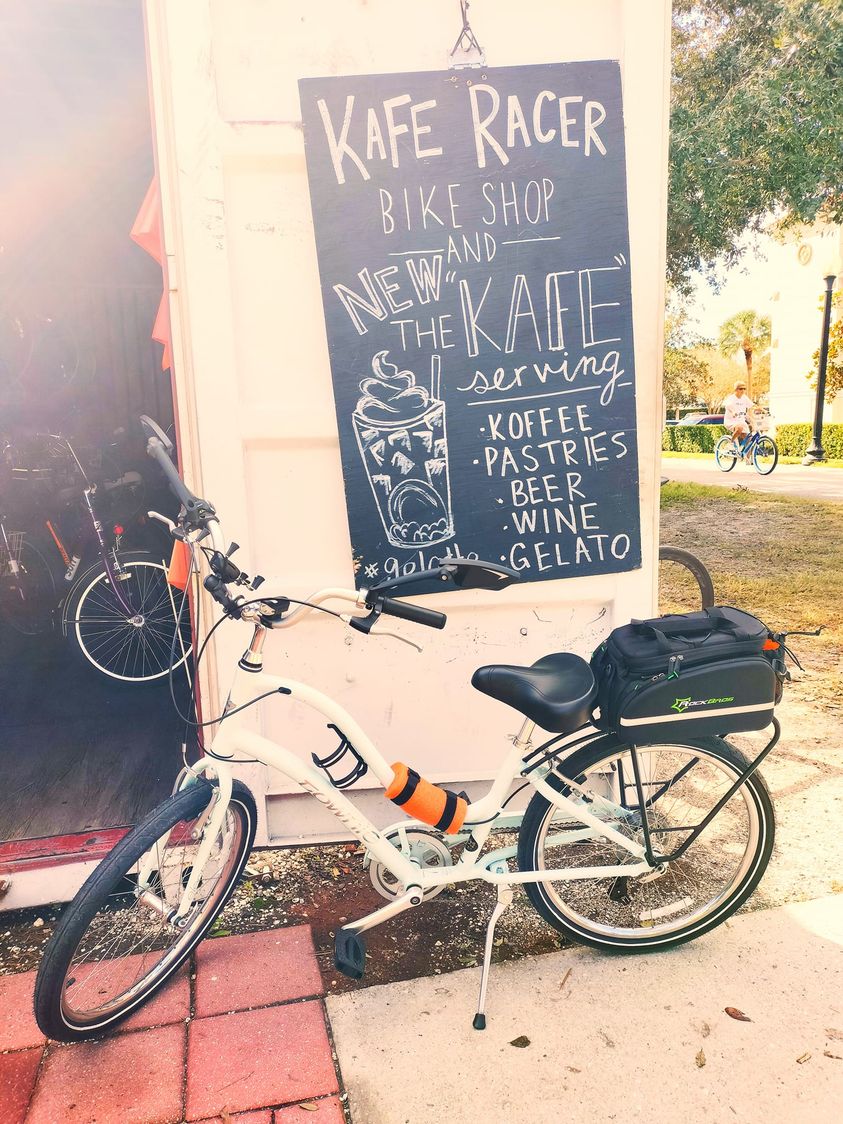 KAFE RACER
BIKE SHOP
AND
NEW "KAFE"
THE
serving
·KOFFEE
·PASTRIES
·BEER
·WINE
·GELATO
ROCKBROS